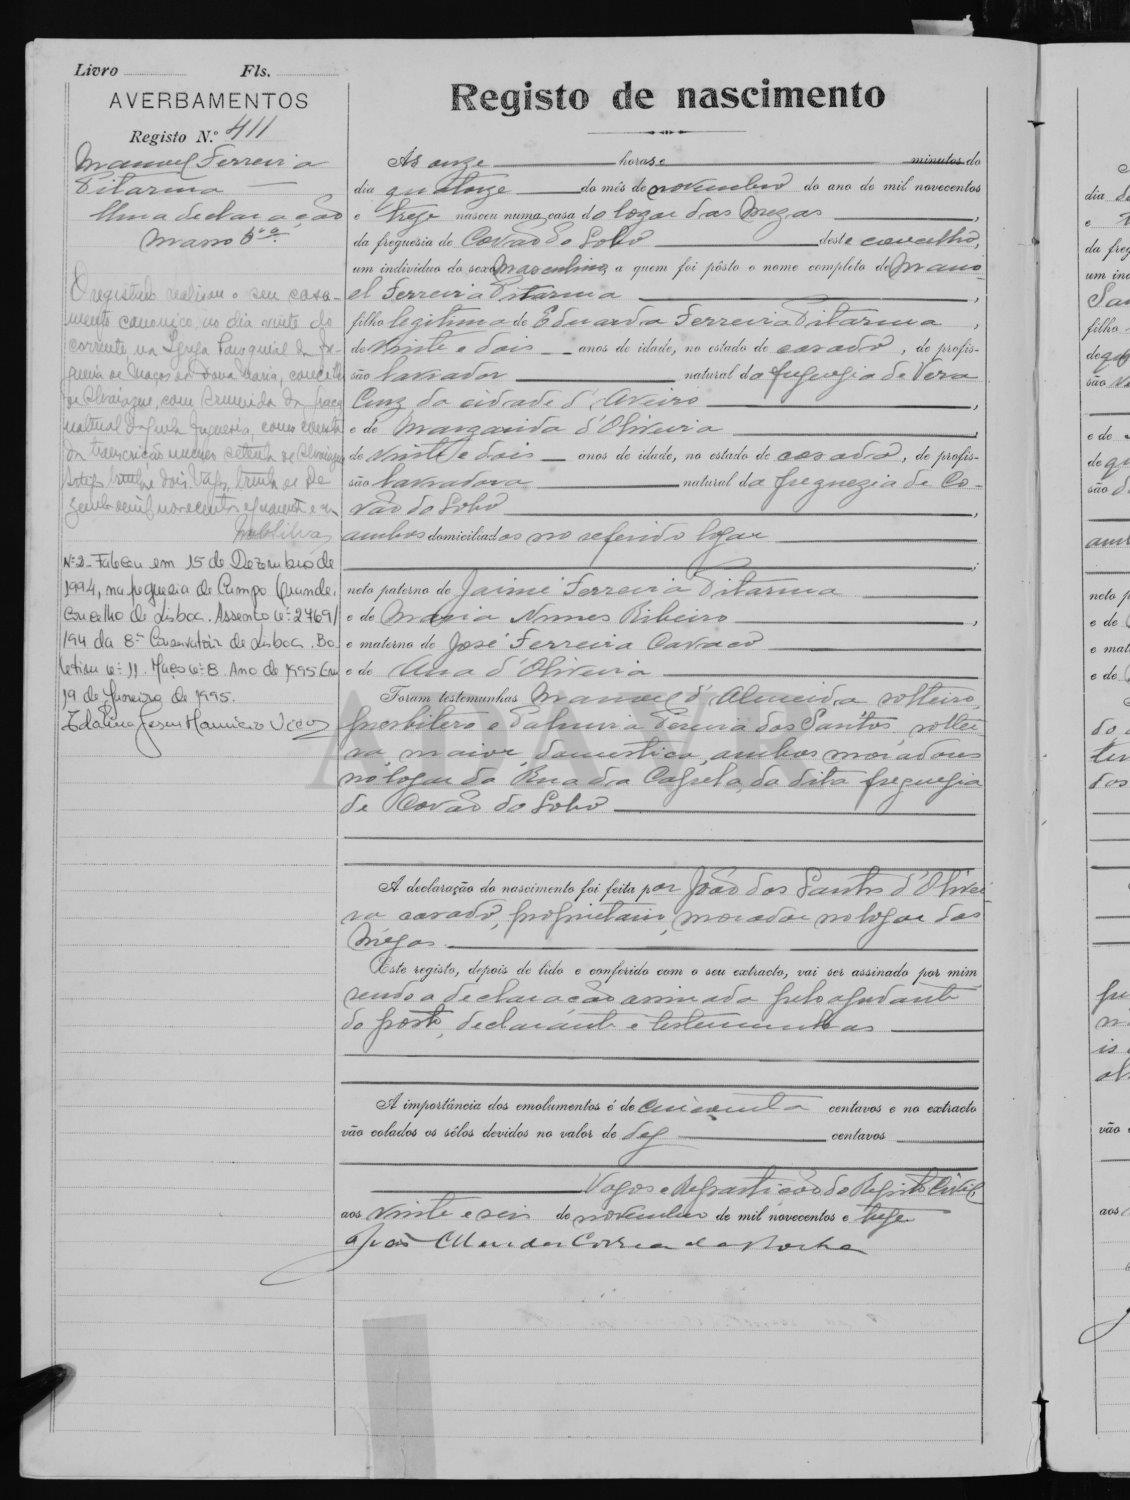 Livro Fls.
AVERBAMENTOS
Registo N.º 411
Manuel Ferreira
Pitarma
Uma declaração
Masso 6
O registado realizou o seu casa-
mento canonico, no dia vinte do
corrente na Igreja Paroquial da fre-
guesia de Maçãs de Dona Maria, concelho
de Alvaiazere, com Ermerinda da
natural daquela freguesia, como consta
da transcrição numero setenta de Alvaiazere
trinta e dois. Vagos, trinta de De-
zembro de mil novecentos e quarenta e um
Nº 2 - Faleceu em 15 de Dezembro de
1994, na freguesia de Campo Grande,
concelho de Lisboa. Assento nº 2769/
194 da 8ª Conservatória de Lisboa. Bo-
letim nº 11. Maço nº 8. Ano de 1995. Em
19 de Janeiro de 1995.
Registo de nascimento
Às onze horas e minutos do
dia quatorze do mês de novembro do ano de mil novecentos
e treze nasceu numa casa do logar das Mezas ,
da freguesia de Covão do Lobo deste concelho,
um individuo do sexo masculino, a quem foi pôsto o nome completo de Manu-
el Ferreira Pitarma ,
filho legitimo de Eduardo Ferreira Pitarma ,
de vinte e dois anos de idade, no estado de casado , de profis-
são lavrador natural da freguezia de Vera
Cruz da cidade d'Aveiro ,
e de Margarida d'Oliveira ,
de vinte e dois anos de idade, no estado de casada , de profis-
são lavradora natural da freguezia de Co-
vão do Lobo ,
ambos domiciliados no referido logar
;
neto paterno de Jaime Ferreira Pitarma
e de Maria Nunes Ribeiro ,
e materno de José Ferreira Cavaco
e de Ana d'Oliveira
Foram testemunhas Manuel d'Almeida, solteiro,
presbitero e Palmira Pereira dos Santos, soltei-
ra, maior, domestica, ambos moradores
no logar da Rua da Capela, da dita freguezia
de Covão do Lobo
A declaração do nascimento foi feita por João dos Santos d'Olivei-
ra casado, proprietario, morador no logar das
Mezas
Este registo, depois de lido e conferido com o seu extracto, vai ser assinado por mim
sendo a declaração assinada pelo ajudante
do posto, declarante e testemunhas
A importância dos emolumentos é de cincoenta centavos e no extracto
vão colados os sêlos devidos no valor de dez centavos
Vagos e Repartição do Registo Civil,
aos vinte e seis de novembro de mil novecentos e treze
João Mendes Correia da Rocha